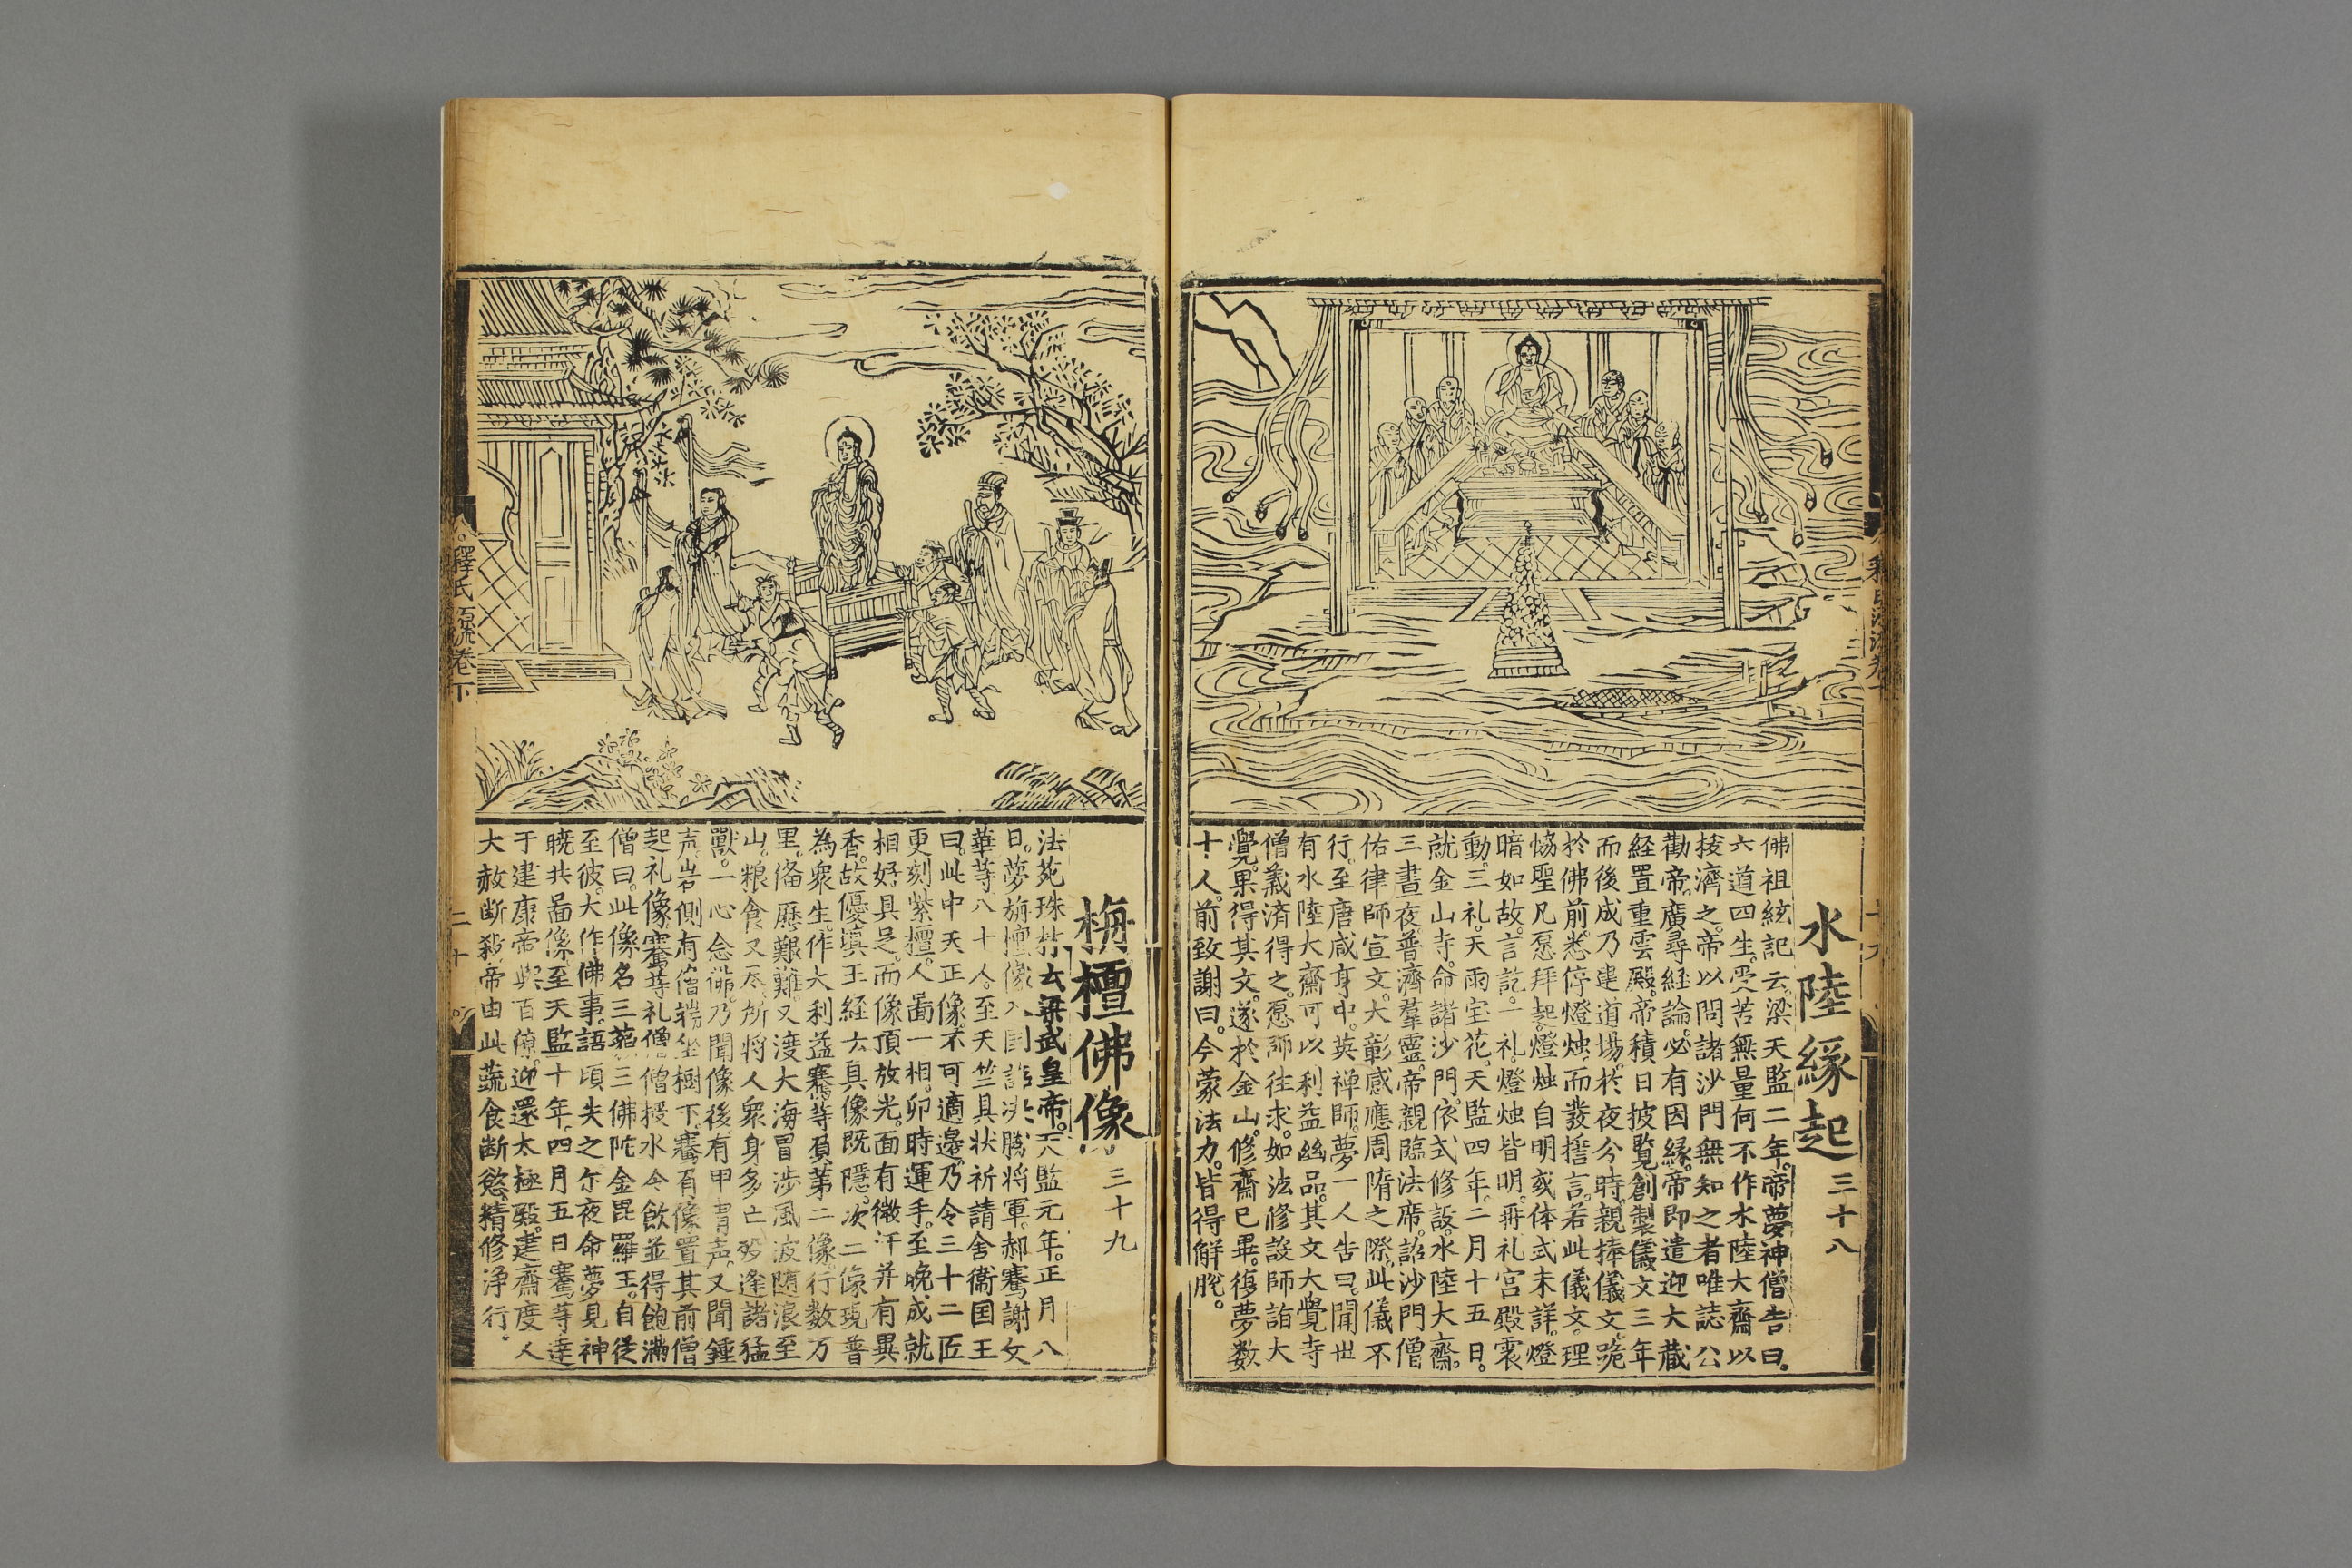 水陸緣起三十八
佛祖絃記云梁天監二年。帝夢神僧告曰。
六道四生。受苦無量何不作水陸大齋以
拔濟之。帝以問諸沙門無知之者唯誌公
勸帝。廣尋経論。必有因縁。帝即遣迎大藏
経置重雲殿。帝積日披覧。創製儀文三年
而後成乃建道場。於夜分時。親捧儀文。跪
於佛前。悉停燈烛。而發誓言。若此儀文。理
恊聖凡。愿拜起。燈烛自明或体式未詳。燈
暗如故。言訖。一礼。燈烛皆明。再礼宫殿震
動。三礼。天雨宝花。天監四年。二月十五日。
就金山寺。命諸沙門。依式修設。水陸大齋。
三晝夜。普濟羣靈。帝親臨法席。詔沙門僧
佑律師宣文。大彰感應周隋之際。此儀不
行。至唐咸亨中。英禅師。夢一人告曰。聞世
有水陸大齋可以利益幽品。其文大覺寺
僧義済得之。愿師往求。如法修設師詣大
覺。果得其文。遂於金山。修齋已畢。復夢数
十人。前致謝曰。今蒙法力。皆得解脱。
栴檀佛像三十九
法苑珠林云梁武皇帝。天監元年。正月八
日。夢旃檀像入国詔决勝将軍。郝騫謝文
華等八十人。至天竺具状祈請舍衞国王
曰。此中天正像。不可適邊。乃令三十二匠
更刻紫檀。人啚一相。卯時運手。至晚成就
相好具足。而像頂放光。面有微汗并有異
香。故優填王経云真像既隱。次二像現普
為衆生。作大利益騫等負第二像。行数万
里。俻歷艱難。又渡大海冒涉風波随浪至
山。粮食又尽。所将人衆身多亡殁逢諸猛
獸。一心念佛。乃聞像後。有甲冑声。又聞鍾
声。岩側有僧端坐樹下。騫負像置其前僧
起礼像。騫等礼僧僧授水令飲並得飽滿
僧曰。此像名三藐三佛陀金毘羅王。自従
至彼。大作佛事。語頃失之尓夜命夢見神
曉共啚像。至天監十年。四月五日騫等達
于建康帝與百僚。迎還太極殿。建齋度人
大赦断殺帝由此蔬食断慾。精修浄行。
釋氏源流卷下
二十